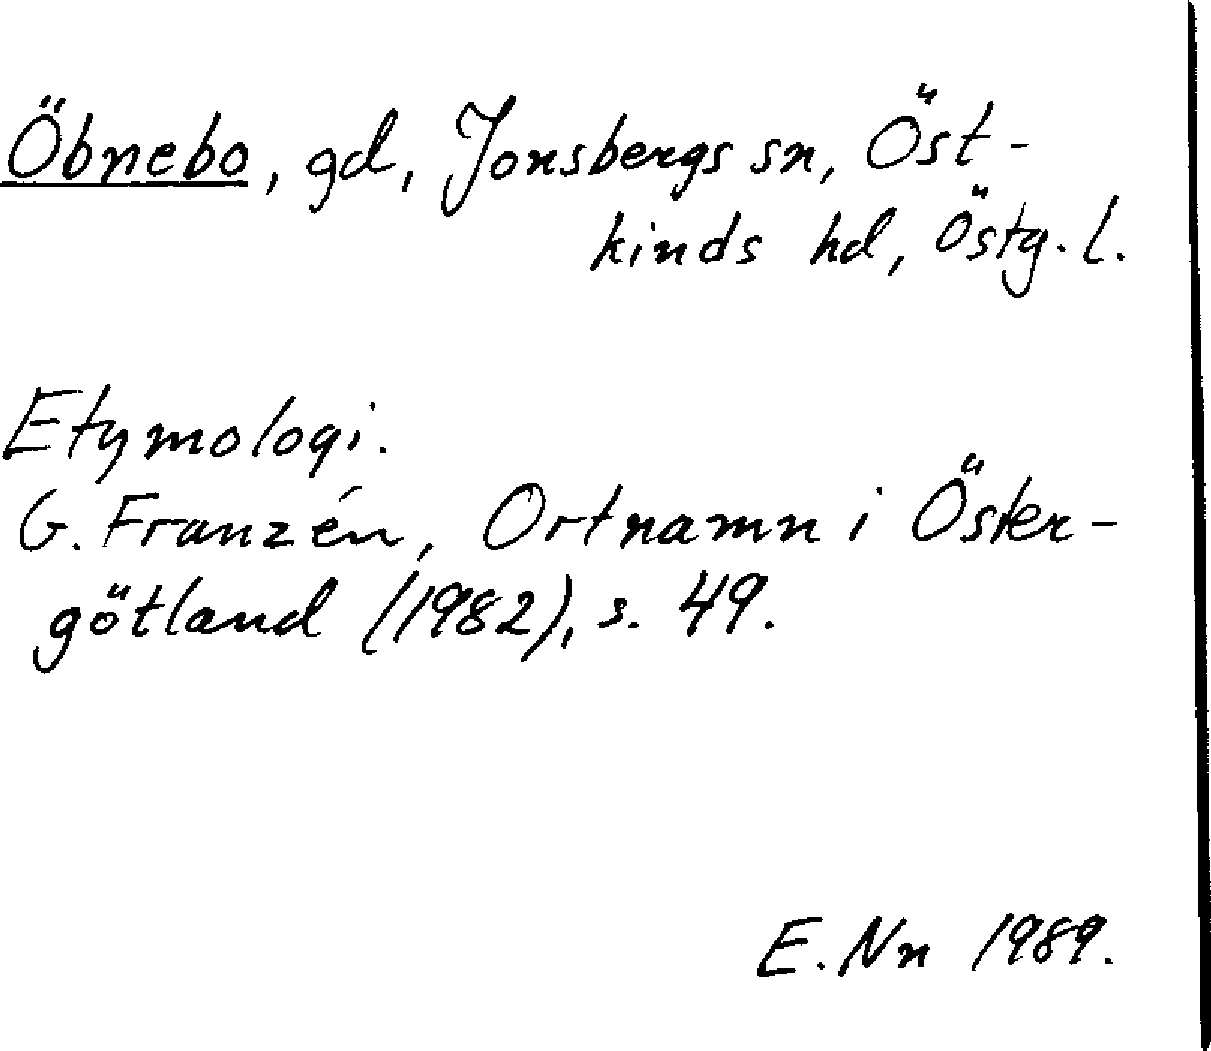 Öbnebo, gd, Jonsbergs sn, Öst-
kinds hd, Östg. l.
Etymologi.
G. Franzén, Ortnamn i Öster-
götland (1982), s. 49.
E. Nn 1989.